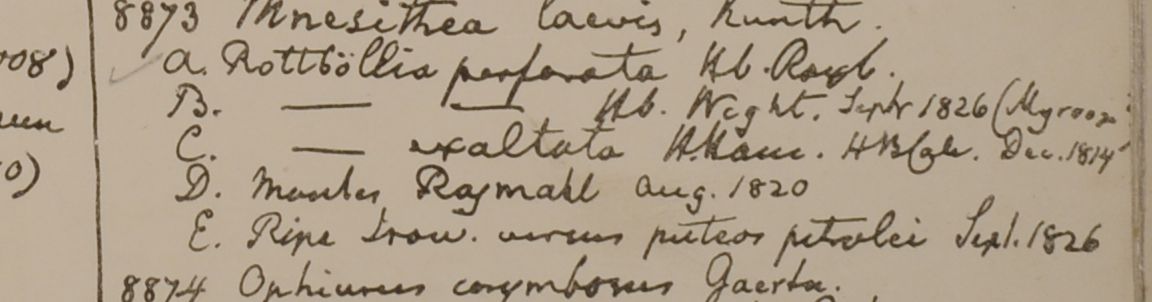 8873 Mnesithea laevis, Kunth.
008)
a. Rottböllia perforata Hb. Roxb.
B. — — Hb. Wight. Septr 1826 (
C. — exaltata H. Ham. HBCalc. Dec. 1814
0)
D. Montes Rajmahl Aug. 1820
E. Ripa Iraw. versus puteos petrolei Sept. 1826
8874 Ophiurus corymbosus Gaertn.